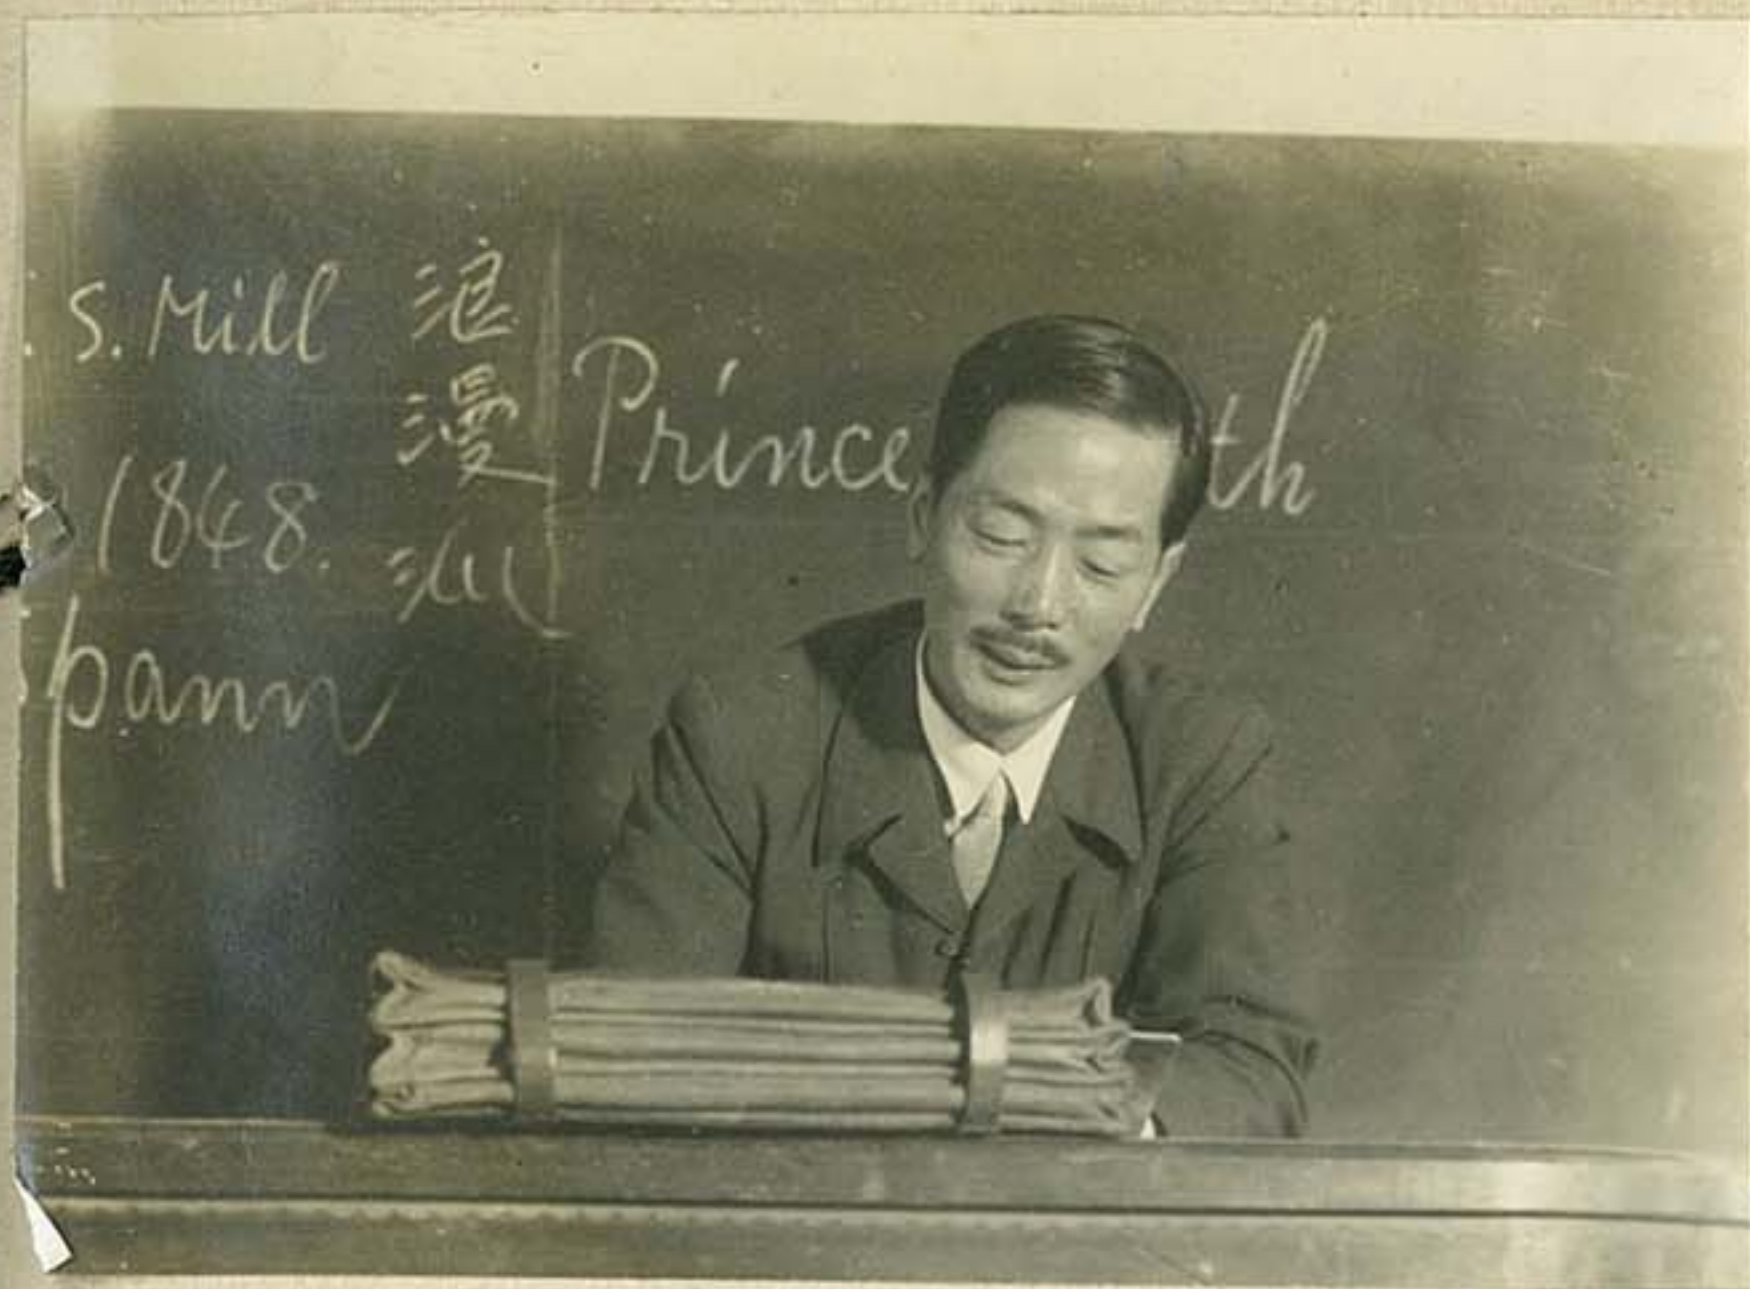 . S. Mill
1848.
Spann
浪漫派
Prince th